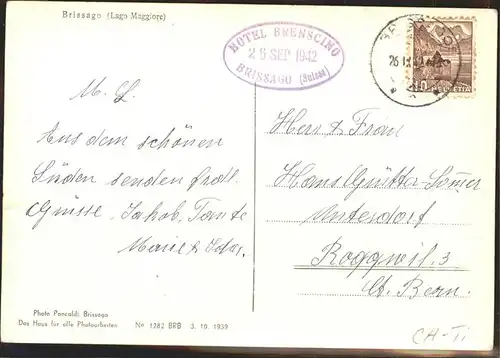 Brissago (Lago Maggiore)
HOTEL BRENSCINO
25 SEP 1942
BRISSAGO (Suisse)
HELVETIA
M. L.
Aus dem schönen
Süden senden frdl.
Grüsse, Jakob, Tante
Marie &
Herr & Frau
Hans Gütter-Somer
Unterdorf
Roggwil. 3
Ct. Bern.
Photo Pancaldi, Brissago
Das Haus für alle Photoarbeiten No 1282 BRB 3. 10. 1939
CH-Ti